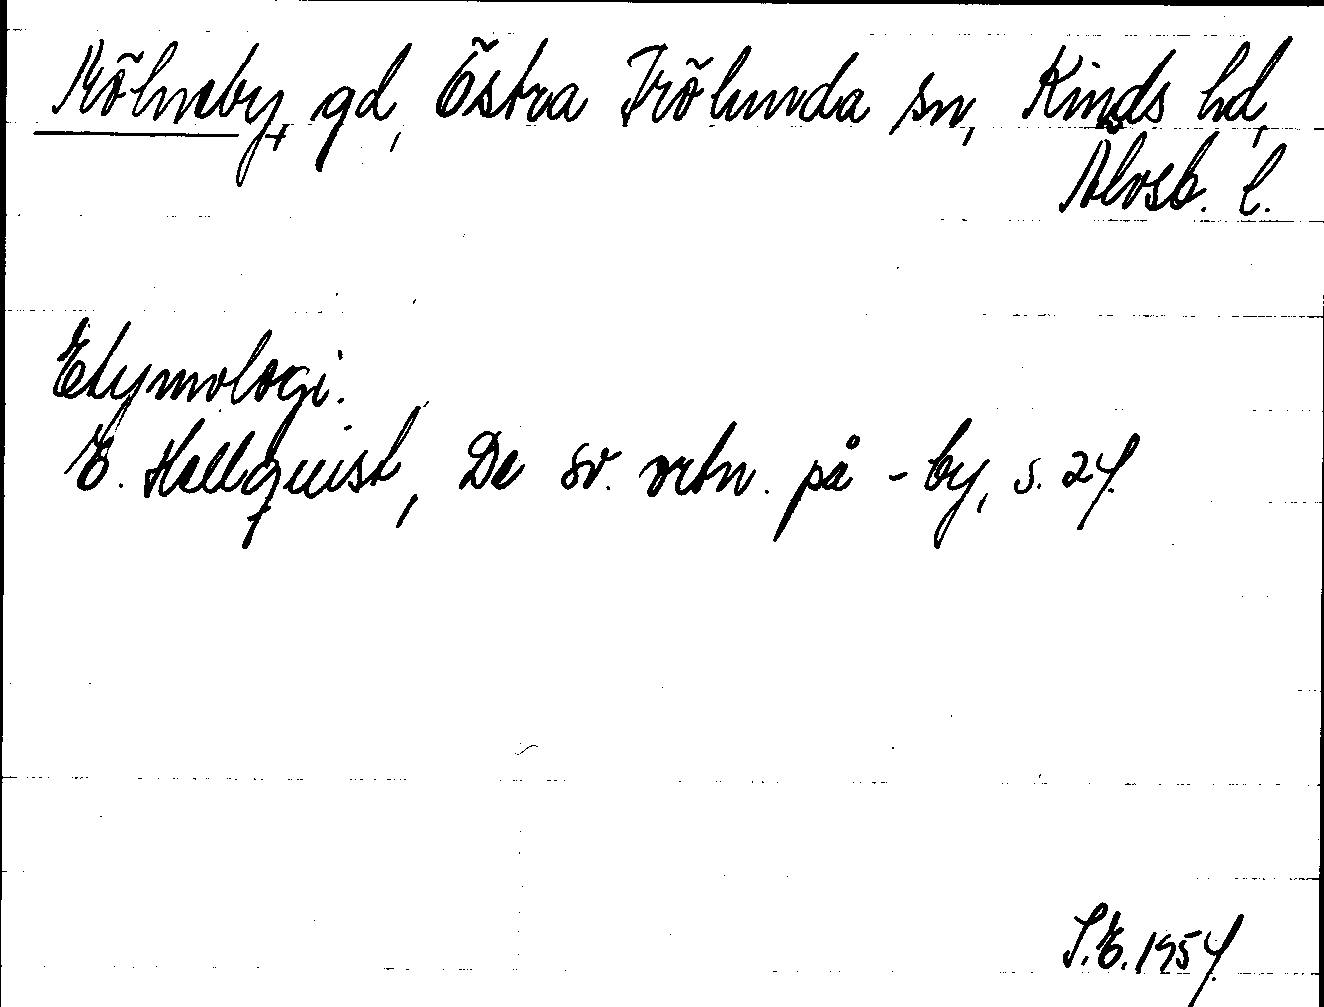 Mölneby, gd, Östra Frölunda sn, Kinds hd,
Älvsb. l.
Etymologi.
E. Hellquist, De sv. ortn. på -by, s. 24.
S.E. 1954.